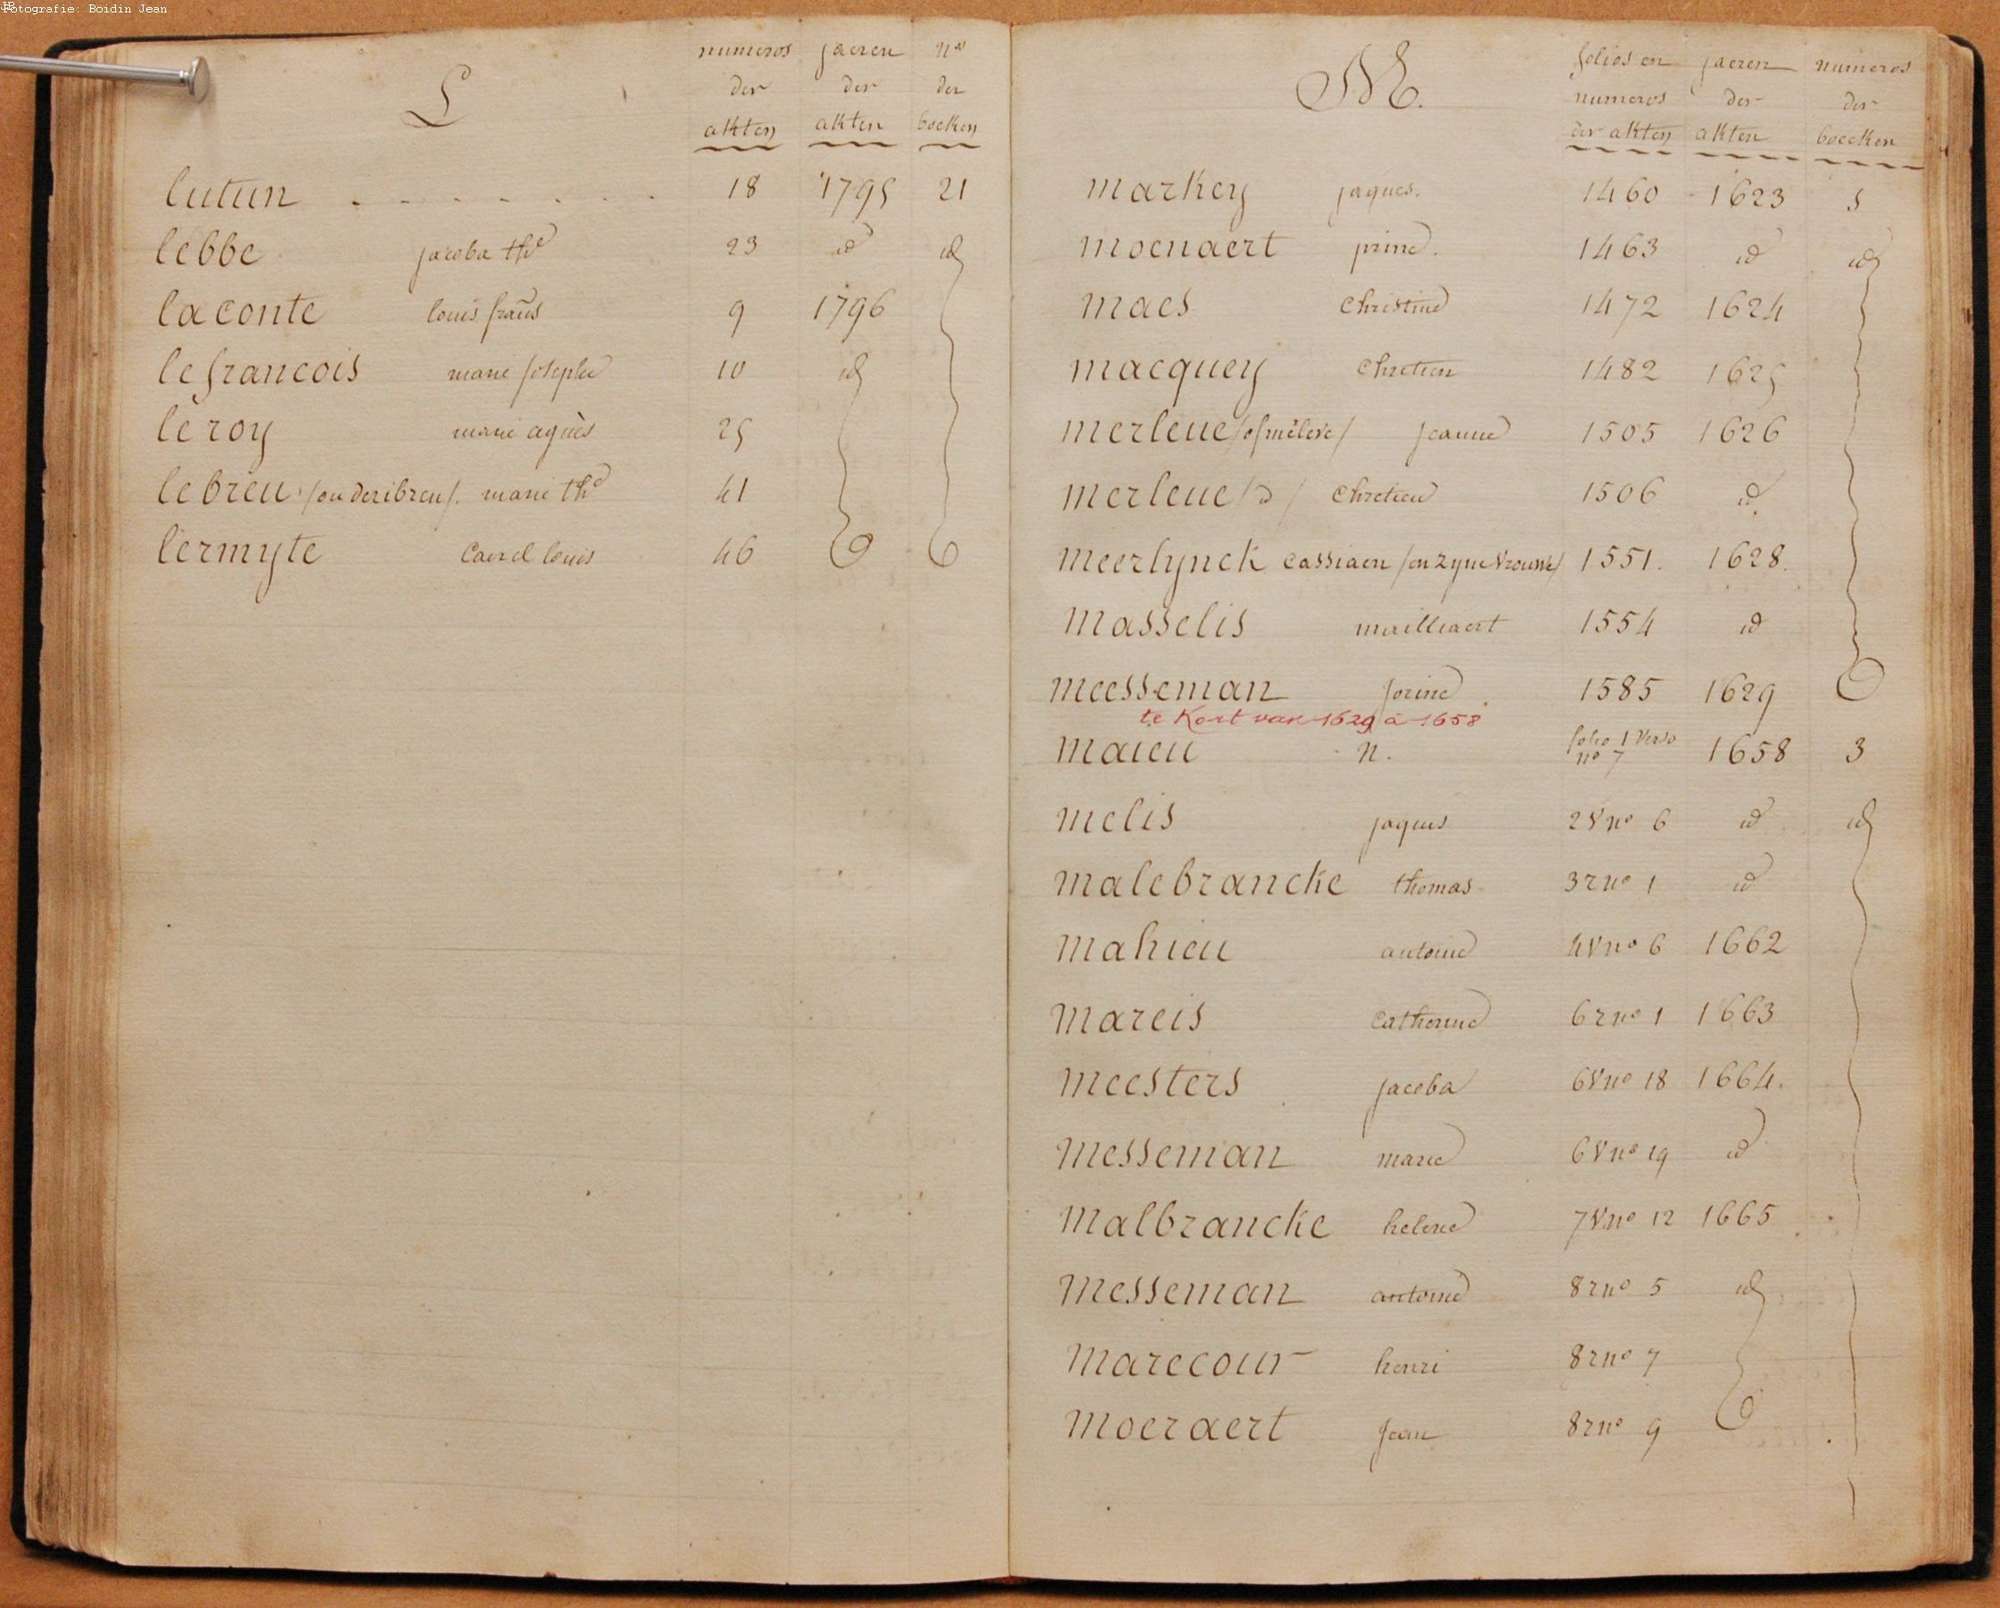 Fotografie: Boidin Jean
L
numeros der akten
jaeren der akten
nos der boeken
lutun 18 1795 21
lebbe jacoba the 23 id id
laconte louis frans 9 1796
lefrancois marie josephe 10 id
leroy marie agnès 25
lebreu /ou deribreu/. marie the 41
lermyte Carel louis 46
M.
folios en numeros der akten
jaeren der akten
numeros der boecken
markey jaques. 1460 1623 5
moenaert prine. 1463 id id
maes Christine 1472 1624
macquey Chretien 1482 1625
merleue /of meleve/ jeanne 1505 1626
merleue /id/ Chretien 1506 id
meerlynck cassiaen /en zyne vrouwe/ 1551. 1628.
masselis mailliaert 1554 id
meesseman jorine 1585 1629
te Kort van 1629 à 1658
maieu n. folio 1 verso no 7 1658 3
melis jaques 2 V no 6 id id
malebrancke thomas 3 r no 1 id
mahieu antoine 4 V no 6 1662
mareis Catherine 6 r no 1 1663
meesters jacoba 6 V no 18 1664.
messeman marie 6 V no 19 id
malbrancke helene 7 V no 12 1665
messeman antoine 8 r no 5 id
marecour henri 8 r no 7
moeraert jean 8 r no 9